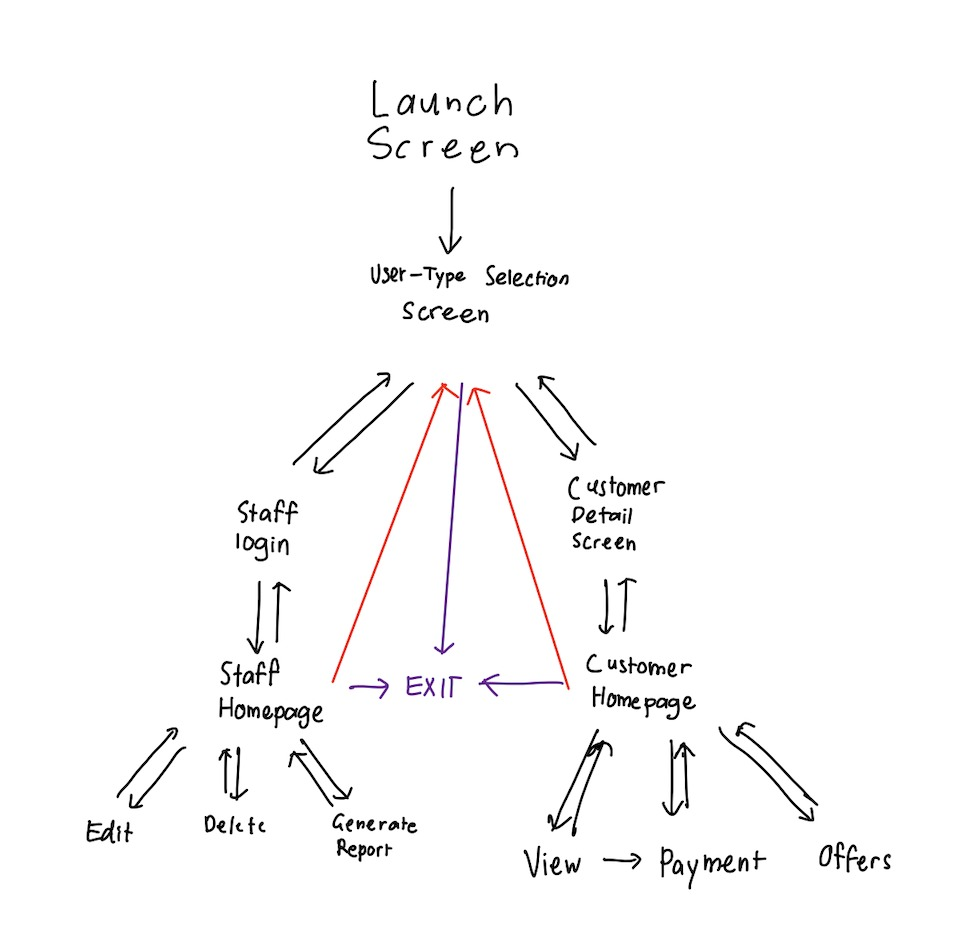 Launch
Screen
User-Type Selection
Screen
Staff
login
Customer
Detail
Screen
Staff
Homepage
EXIT
Customer
Homepage
Edit
Delete
Generate
Report
View
Payment
Offers